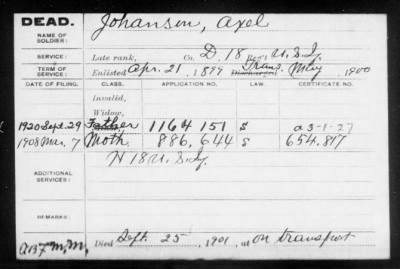 DEAD.
Johansen, Axel
NAME OF SOLDIER:
SERVICE: Late rank, Co. D, 18 Reg't U.S.I.
TERM OF SERVICE: Enlisted Apr. 21, 1899 Discharged Trans. May, 1900
DATE OF FILING. CLASS. APPLICATION NO. LAW. CERTIFICATE NO.
Invalid,
Widow,
1920 Sept. 29 Father 1164 151 S a 3-1-27
1908 Mar. 7 Moth. 886,644 S 654.817
H 18 U.S.I.
ADDITIONAL SERVICES:
REMARKS:
M.M. Died Sept. 25, 1901, at on transport